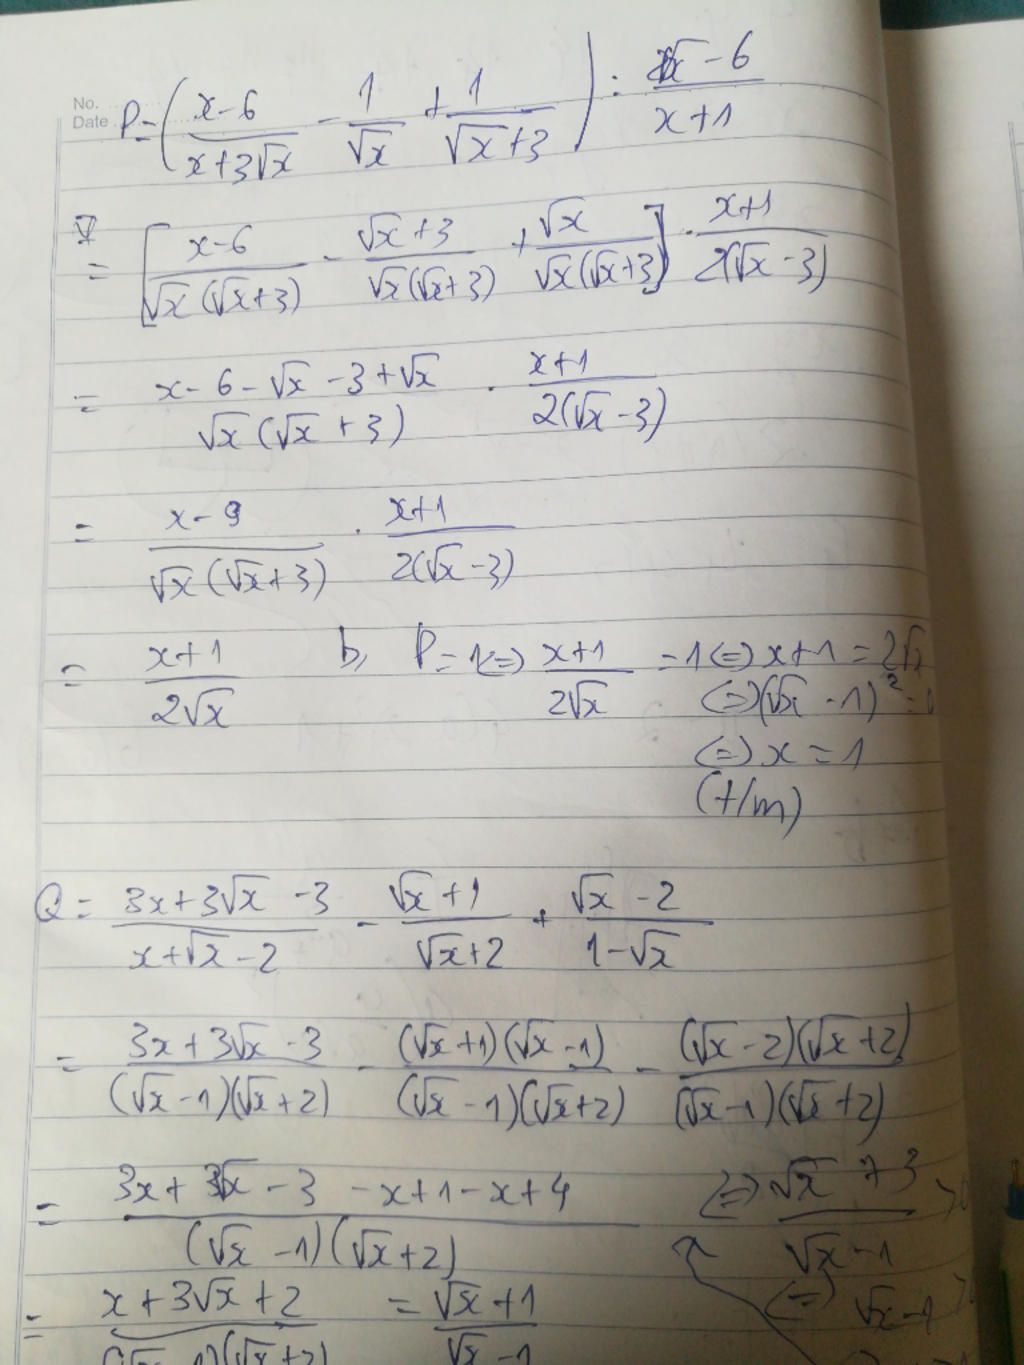 No.
Date
P = ( (x-6)/(x+3√x) - 1/√x + 1/(√x+3) ) : (2√x-6)/(x+1)
= [ (x-6)/(√x(√x+3)) - (√x+3)/(√x(√x+3)) + √x/(√x(√x+3)) ] . (x+1)/(2(√x-3))
= (x-6-√x-3+√x)/(√x(√x+3)) . (x+1)/(2(√x-3))
= (x-9)/(√x(√x+3)) . (x+1)/(2(√x-3))
= (x+1)/(2√x) b, P=1 <=> (x+1)/(2√x) = 1 <=> x+1 = 2√x
<=> (√x-1)² = 0
<=> x = 1
(t/m)
Q = (3x+3√x-3)/(x+√x-2) - (√x+1)/(√x+2) + (√x-2)/(1-√x)
= (3x+3√x-3)/((√x-1)(√x+2)) - ((√x+1)(√x-1))/((√x-1)(√x+2)) - ((√x-2)(√x+2))/((√x-1)(√x+2))
= (3x+3√x-3-x+1-x+4)/((√x-1)(√x+2)) <=> (√x+3)/(√x-1) >0
= (x+3√x+2)/((√x-1)(√x+2)) = (√x+1)/(√x-1) <=> √x-1 >